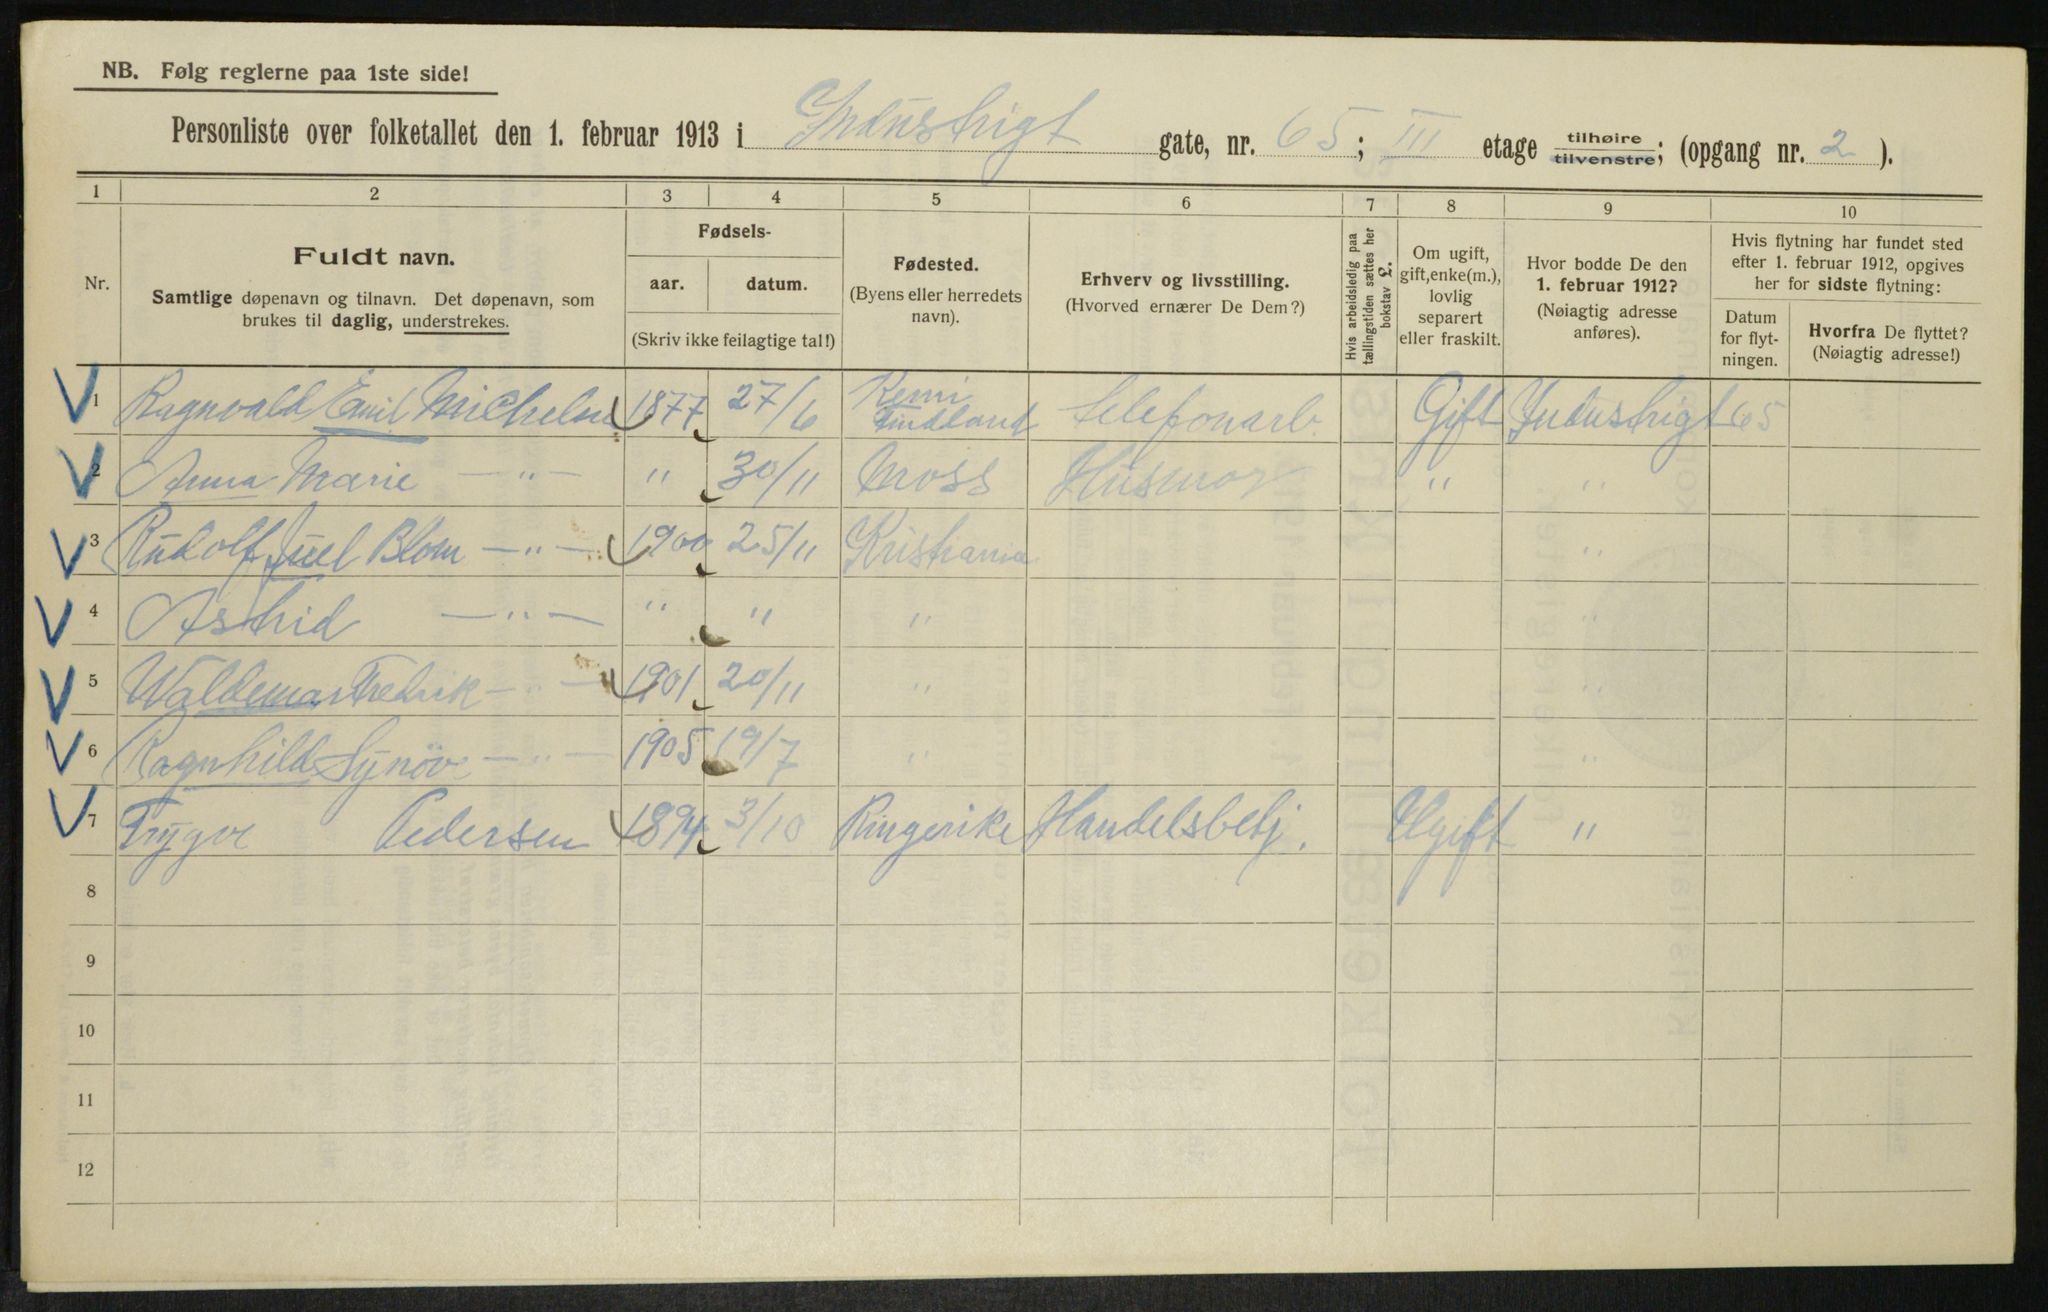 NB. Følg reglerne paa 1ste side!
Personliste over folketallet den 1. februar 1913 i Industrigt gate, nr. 65; III etage tilhøire tilvenstre; (opgang nr. 2).
1 2 3 4 5 6 7 8 9 10
Nr.
Fuldt navn.
Samtlige døpenavn og tilnavn. Det døpenavn, som
brukes til daglig, understrekes.
Fødsels-
aar. datum.
(Skriv ikke feilagtige tal!)
Fødested.
(Byens eller herredets
navn).
Erhverv og livsstilling.
(Hvorved ernærer De Dem?)
Hvis arbeidsledig paa
tællingstiden sættes her
bokstav L.
Om ugift,
gift, enke(m.),
lovlig
separert
eller fraskilt.
Hvor bodde De den
1. februar 1912?
(Nøiagtig adresse
anføres).
Hvis flytning har fundet sted
efter 1. februar 1912, opgives
her for sidste flytning:
Datum
for flyt-
ningen.
Hvorfra De flyttet?
(Nøiagtig adresse!)
1 Ragnvald Emil Michelsen 1877 27/6 Kemi Findland Telefonarb. Gift Industrigt 65
2 Anna Marie — " — " 30/11 Moss Husmor " "
3 Rudolf Juel Blom — " — 1900 25/11 Kristiania "
4 Astrid — " — " " " "
5 Waldemar Fredrik — " — 1901 20/11 " "
6 Ragnhild Synöv — " — 1905 19/7 " "
7 Trygve Pedersen 1894 3/10 Ringerike Handelsbetj. Ugift "
8
9
10
11
12